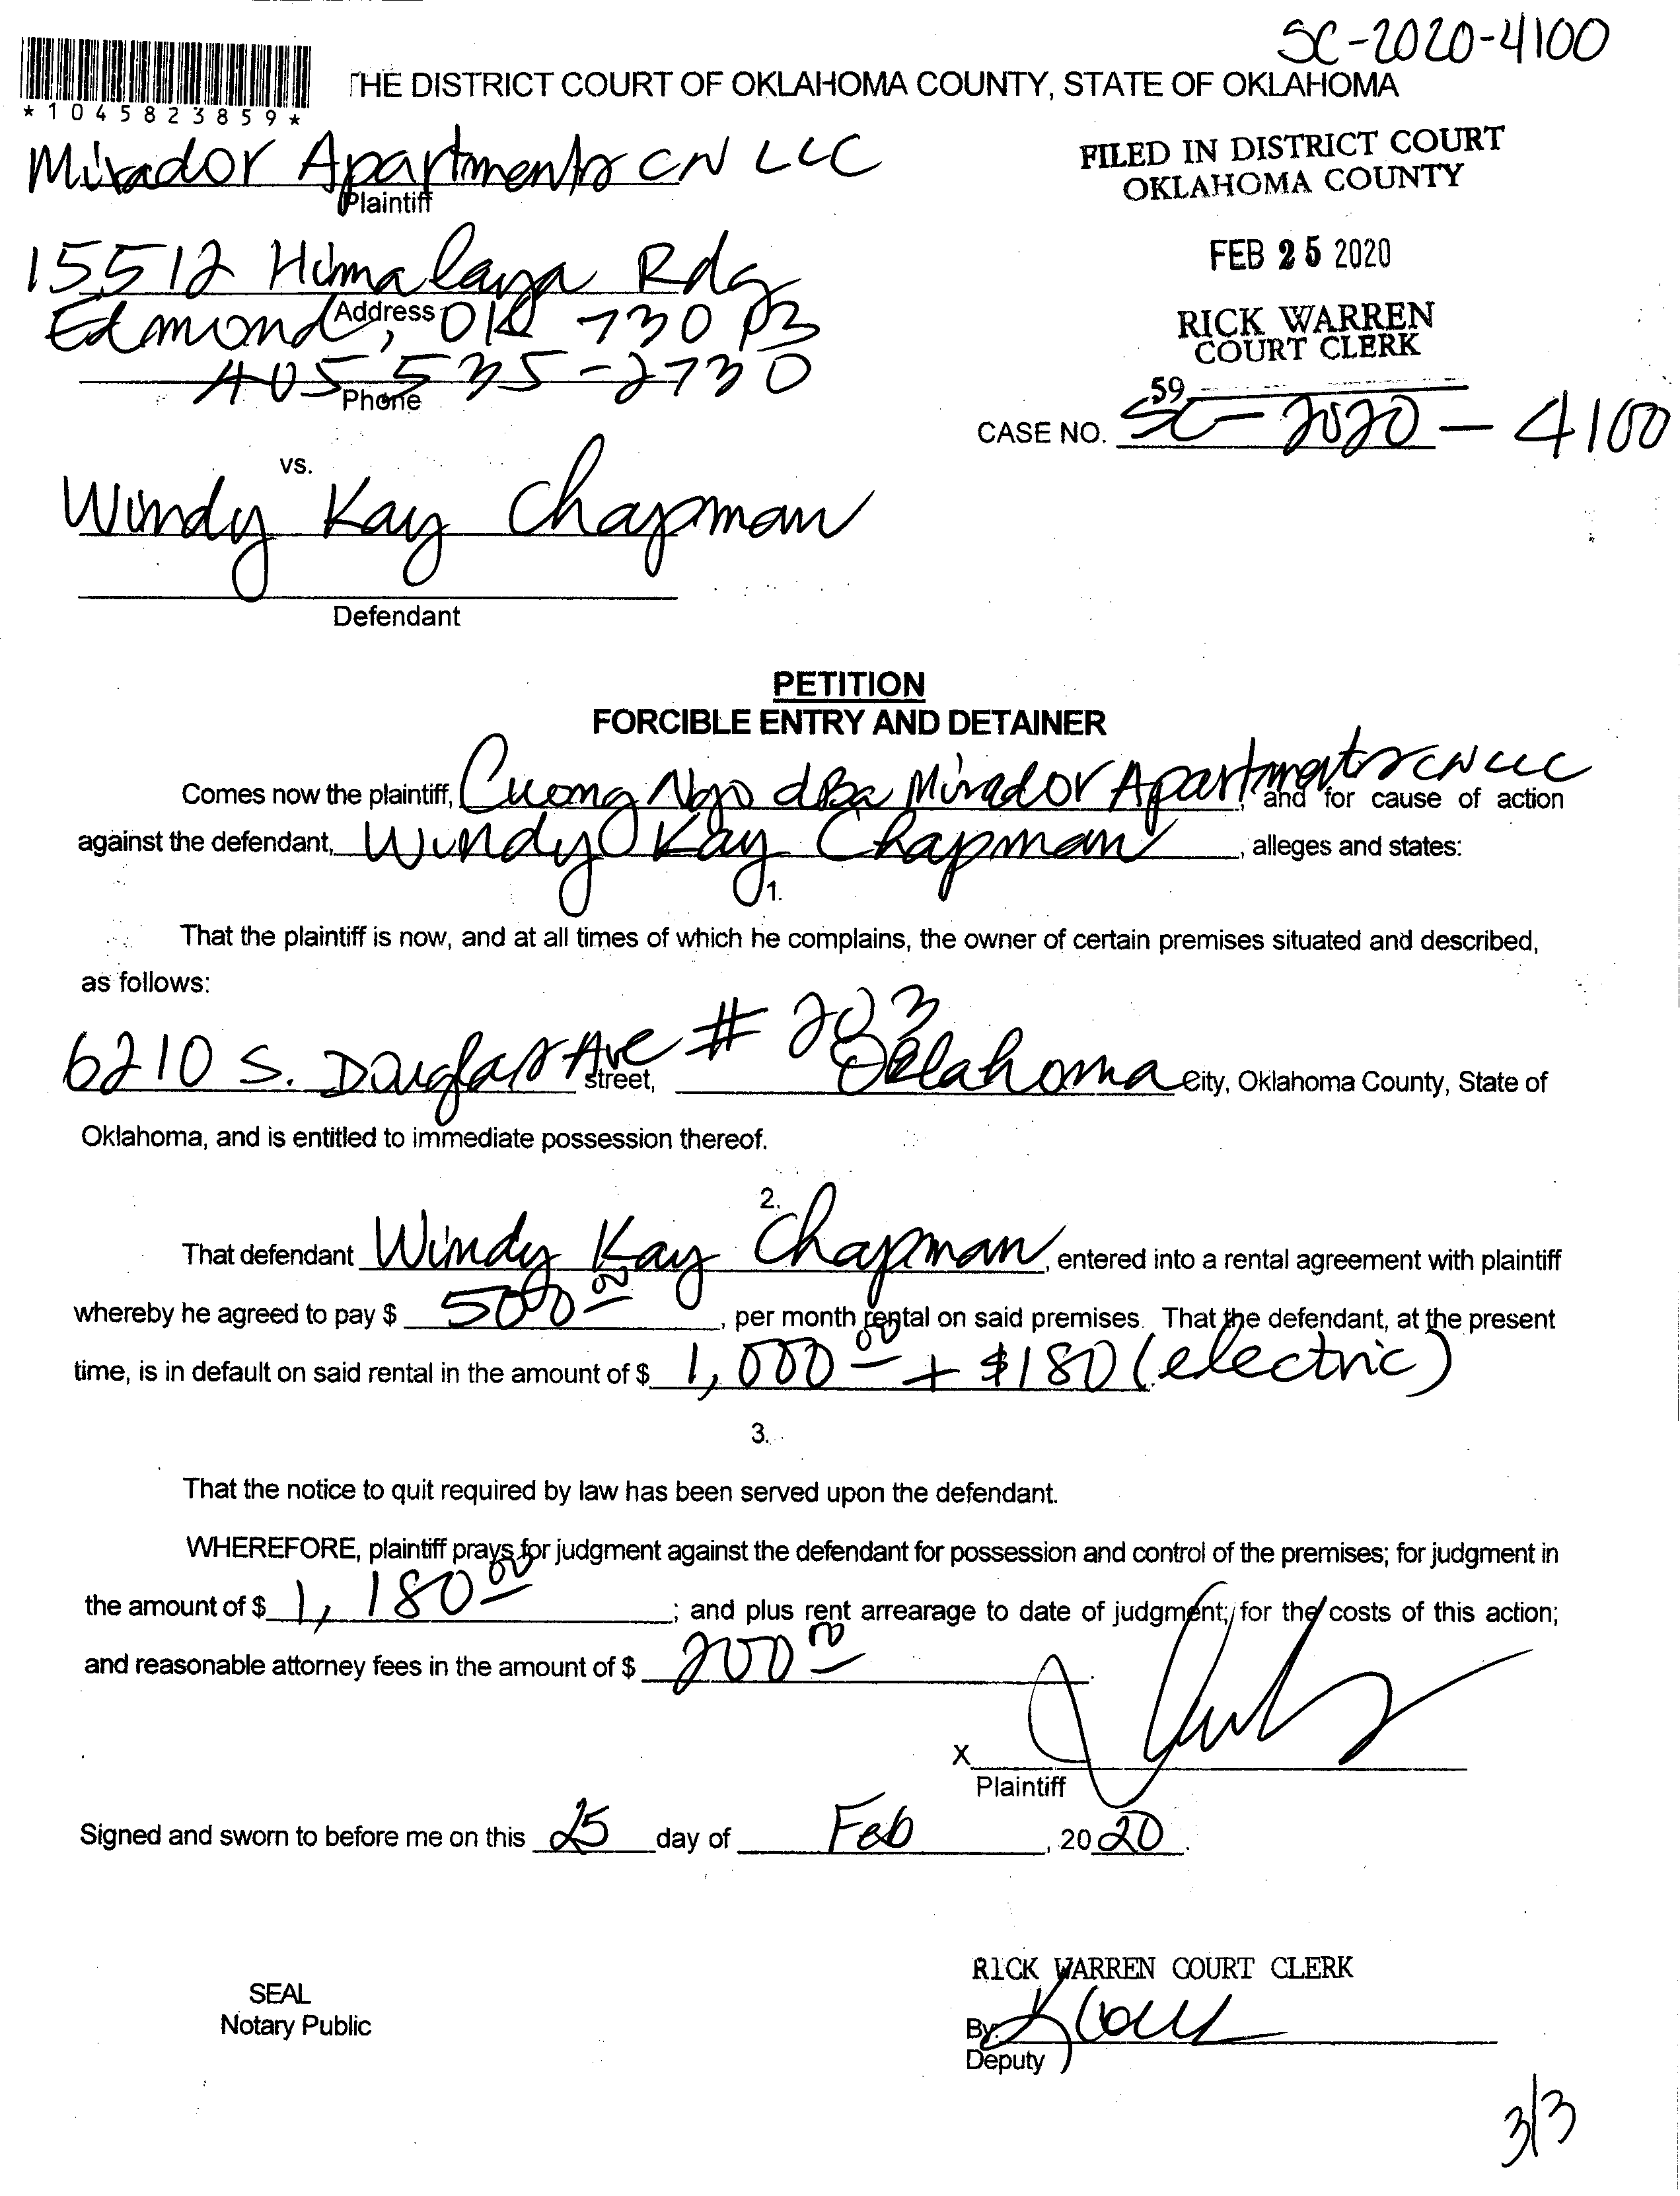 SC-2020-4100
*1045823859*
THE DISTRICT COURT OF OKLAHOMA COUNTY, STATE OF OKLAHOMA
Mirador Apartments CN LLC
Plaintiff
FILED IN DISTRICT COURT
OKLAHOMA COUNTY
15512 Himalaya Rdg
Address
FEB 25 2020
Edmond, OK 73013
RICK WARREN
COURT CLERK
405 535-2730
Phone
59
CASE NO. SC-2020-4100
vs.
Windy Kay Chapman
Defendant
PETITION
FORCIBLE ENTRY AND DETAINER
Comes now the plaintiff, Cuong Ngo dBa Mirador Apartments CN LLC, and for cause of action
against the defendant, Windy Kay Chapman, alleges and states:
1.
That the plaintiff is now, and at all times of which he complains, the owner of certain premises situated and described,
as follows:
6210 S. Douglas Ave # 203 street, Oklahoma City, Oklahoma County, State of
Oklahoma, and is entitled to immediate possession thereof.
2.
That defendant Windy Kay Chapman, entered into a rental agreement with plaintiff
whereby he agreed to pay $ 500 00, per month rental on said premises. That the defendant, at the present
time, is in default on said rental in the amount of $ 1,000 00 + $180 (electric)
3.
That the notice to quit required by law has been served upon the defendant.
WHEREFORE, plaintiff prays for judgment against the defendant for possession and control of the premises; for judgment in
the amount of $ 1,180 00; and plus rent arrearage to date of judgment; for the costs of this action;
and reasonable attorney fees in the amount of $ 200 00.
X
Plaintiff
Signed and sworn to before me on this 25 day of Feb, 2020.
RICK WARREN COURT CLERK
SEAL
Notary Public
By:
Deputy
3/3